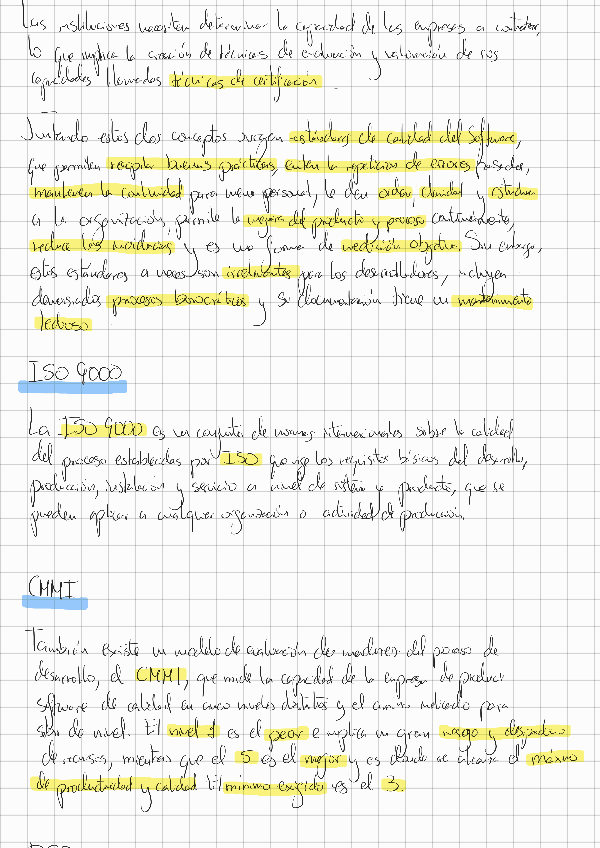 Las instituciones necesitan determinar la capacidad de las empresas a contratar,
lo que implica la creación de técnicas de evaluación y valoración de sus
capacidades llamadas técnicas de certificación
Juntando estos dos conceptos surgen estándares de calidad del software,
que permiten recopilar buenas prácticas, evitan la repetición de errores pasados,
mantienen la continuidad para nuevo personal, le dan orden, claridad y estructura
a la organización, permite la mejora del producto y proceso continuamente,
reduce las incidencias y es una forma de medición objetiva. Sin embargo,
estos estándares a veces son irrelevantes para los desarrolladores, incluyen
demasiados procesos burocráticos y su documentación tiene un mantenimiento
tedioso
ISO 9000
La ISO 9000 es un conjunto de normas internacionales sobre la calidad
del proceso establecidas por ISO que rige los requisitos básicos del desarrollo,
producción, instalación y servicio a nivel de sistema y producto, que se
pueden aplicar a cualquier organización o actividad de producción.
CMMI
También existe un modelo de evaluación de madurez del proceso de
desarrollo, el CMMI, que mide la capacidad de la empresa de producir
software de calidad en cinco niveles distintos y el camino indicado para
subir de nivel. El nivel 1 es el peor e implica un gran riesgo y desperdicio
de recursos, mientras que el 5 es el mejor y es donde se alcanza el máximo
de productividad y calidad El mínimo exigido es el 3.